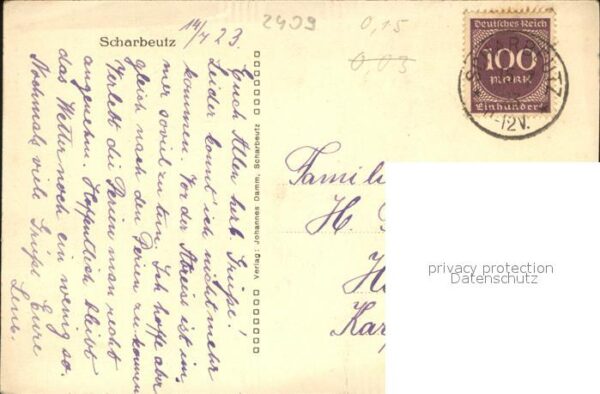 Scharbeutz
14/7 23.
2409
0,15
0,03
Deutsches Reich
100
MARK
Einhundert
SCHARBEUTZ
11-12V.
Euch Allen herzl. Grüße!
Leider konnt' ich nicht mehr
kommen. Vor der Reise ist im-
mer soviel zu tun. Ich hoffe aber
gleich nach den Ferien zu kommen
Verlebt die Ferien man recht
angenehm. Hoffentlich bleibt
das Wetter noch ein wenig so.
Nochmals viele Grüße Eure
Verlag: Johannes Damm, Scharbeutz
Famili
H.
H
Kar
privacy protection
Datenschutz